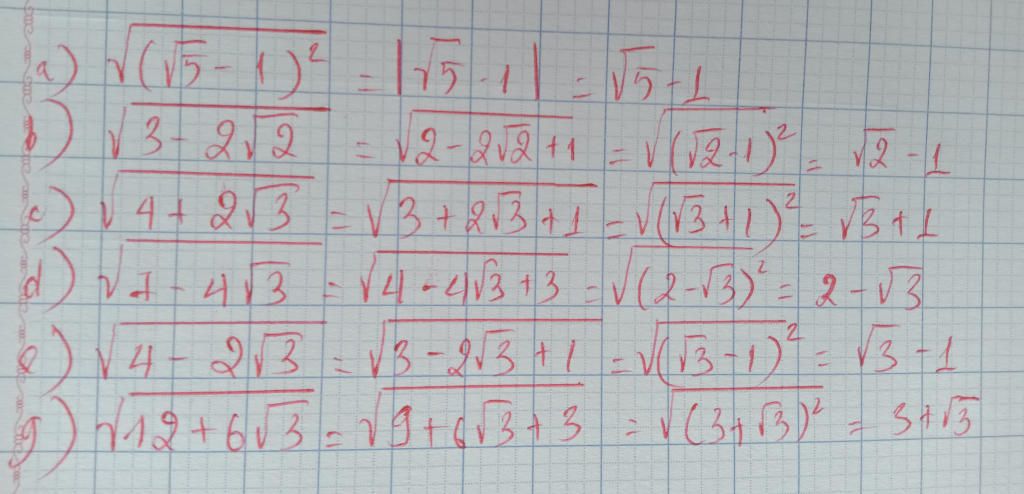 a) √((√5 - 1)²) = |√5 - 1| = √5 - 1
b) √(3 - 2√2) = √(2 - 2√2 + 1) = √((√2 - 1)²) = √2 - 1
c) √(4 + 2√3) = √(3 + 2√3 + 1) = √((√3 + 1)²) = √3 + 1
d) √(7 - 4√3) = √(4 - 4√3 + 3) = √((2 - √3)²) = 2 - √3
e) √(4 - 2√3) = √(3 - 2√3 + 1) = √((√3 - 1)²) = √3 - 1
g) √(12 + 6√3) = √(9 + 6√3 + 3) = √((3 + √3)²) = 3 + √3